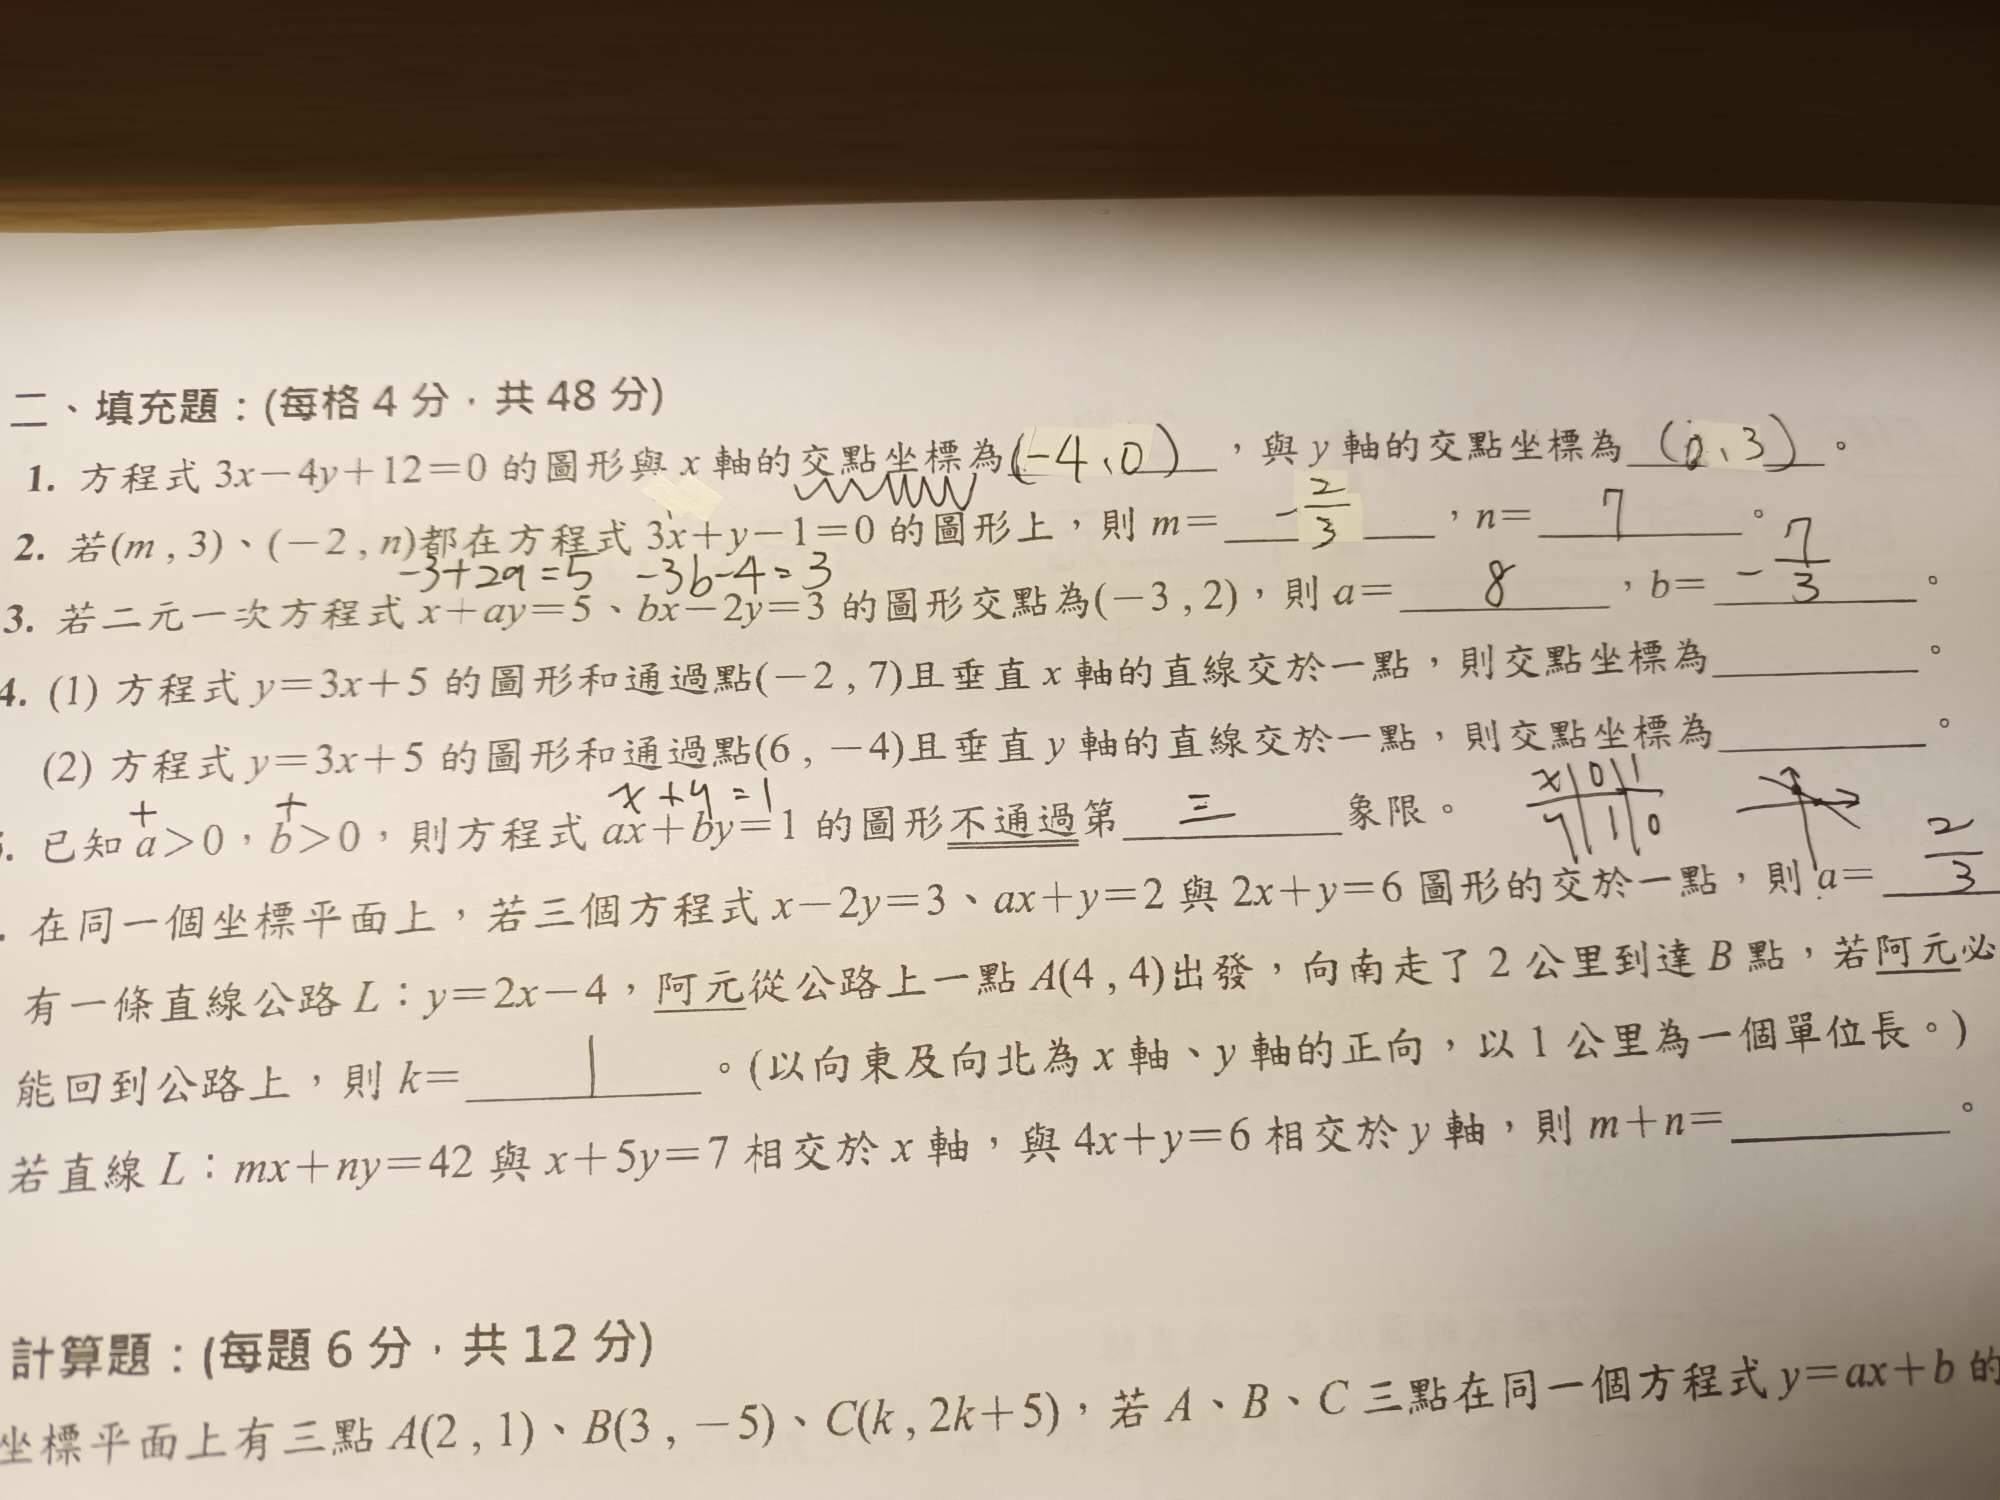 二、填充題：(每格 4 分．共 48 分)
1. 方程式 3x－4y＋12＝0 的圖形與 x 軸的交點坐標為(-4、0)，與 y 軸的交點坐標為(0、3)。
2. 若(m , 3)、(－2 , n)都在方程式 3x＋y－1＝0 的圖形上，則 m＝-2/3，n＝7。
-3+2a=5 -3b-4=3
3. 若二元一次方程式 x＋ay＝5、bx－2y＝3 的圖形交點為(－3 , 2)，則 a＝8，b＝-7/3。
4. (1) 方程式 y＝3x＋5 的圖形和通過點(－2 , 7)且垂直 x 軸的直線交於一點，則交點坐標為。
(2) 方程式 y＝3x＋5 的圖形和通過點(6 , －4)且垂直 y 軸的直線交於一點，則交點坐標為。
+ + x+y=1 x 0 1
y 1 0
. 已知 a＞0，b＞0，則方程式 ax＋by＝1 的圖形不通過第三象限。
. 在同一個坐標平面上，若三個方程式 x－2y＝3、ax＋y＝2 與 2x＋y＝6 圖形的交於一點，則 a＝2/3
有一條直線公路 L：y＝2x－4，阿元從公路上一點 A(4 , 4)出發，向南走了 2 公里到達 B 點，若阿元必
能回到公路上，則 k＝1。(以向東及向北為 x 軸、y 軸的正向，以 1 公里為一個單位長。)
若直線 L：mx＋ny＝42 與 x＋5y＝7 相交於 x 軸，與 4x＋y＝6 相交於 y 軸，則 m＋n＝。
計算題：(每題 6 分．共 12 分)
坐標平面上有三點 A(2 , 1)、B(3 , －5)、C(k , 2k＋5)，若 A、B、C 三點在同一個方程式 y＝ax＋b 的